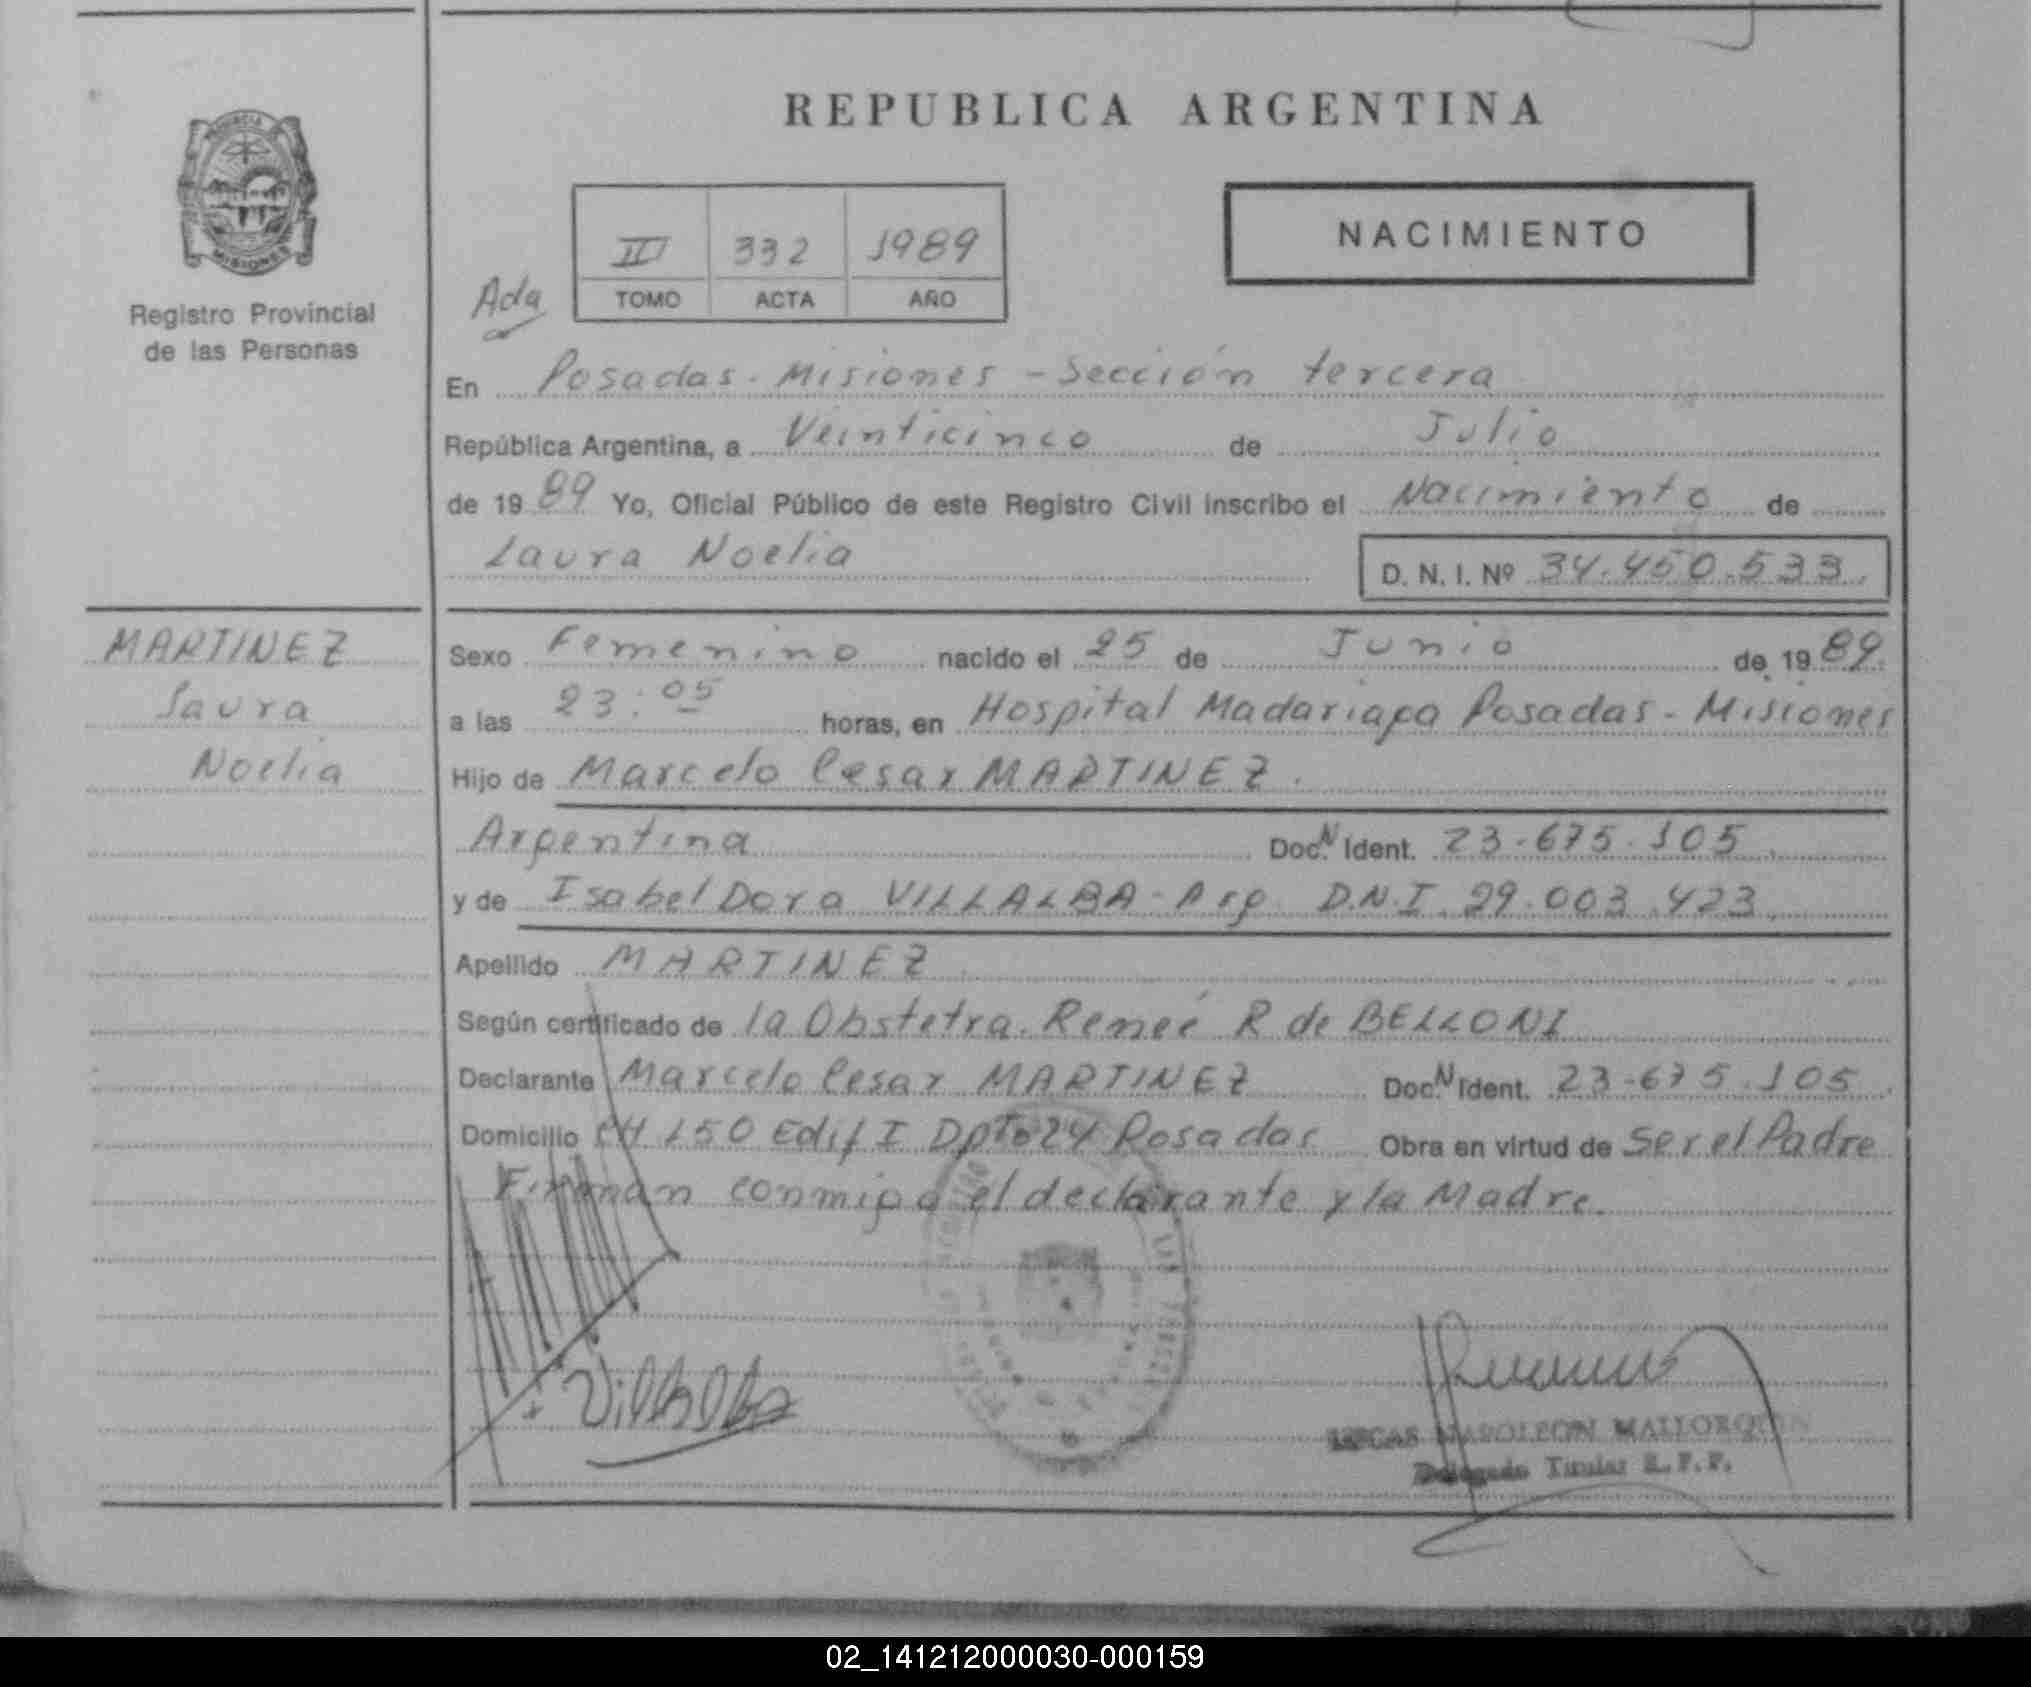 REPUBLICA ARGENTINA
PROVINCIA
MISIONES
Registro Provincial
de las Personas
NACIMIENTO
III 332 1989
TOMO ACTA AÑO
Ada
En Posadas. Misiones - Sección tercera
República Argentina, a Veinticinco de Julio
de 19 89 Yo, Oficial Público de este Registro Civil inscribo el Nacimiento de
Laura Noelia D. N. I. Nº 34.450.533.
MARTINEZ
Laura
Noelia
Sexo Femenino nacido el 25 de Junio de 19 89
a las 23:05 horas, en Hospital Madariaga Posadas - Misiones
Hijo de Marcelo Cesar MARTINEZ.
Argentina Doc. N Ident. 23-675.105.
y de Isabel Dora VILLALBA - Arg. D.N.I. 29.003.423.
Apellido MARTINEZ
Según certificado de la Obstetra. Reneé R de BELLONI
Declarante Marcelo Cesar MARTINEZ Doc. N Ident. 23-675.105.
Domicilio CH 150 Edif I Dpto 24 Posadas Obra en virtud de ser el Padre
Firman conmigo el declarante y la Madre.
Villalba
LUCAS NAPOLEON MALLORQUIN
Delegado Titular R.P.P.
02_141212000030-000159